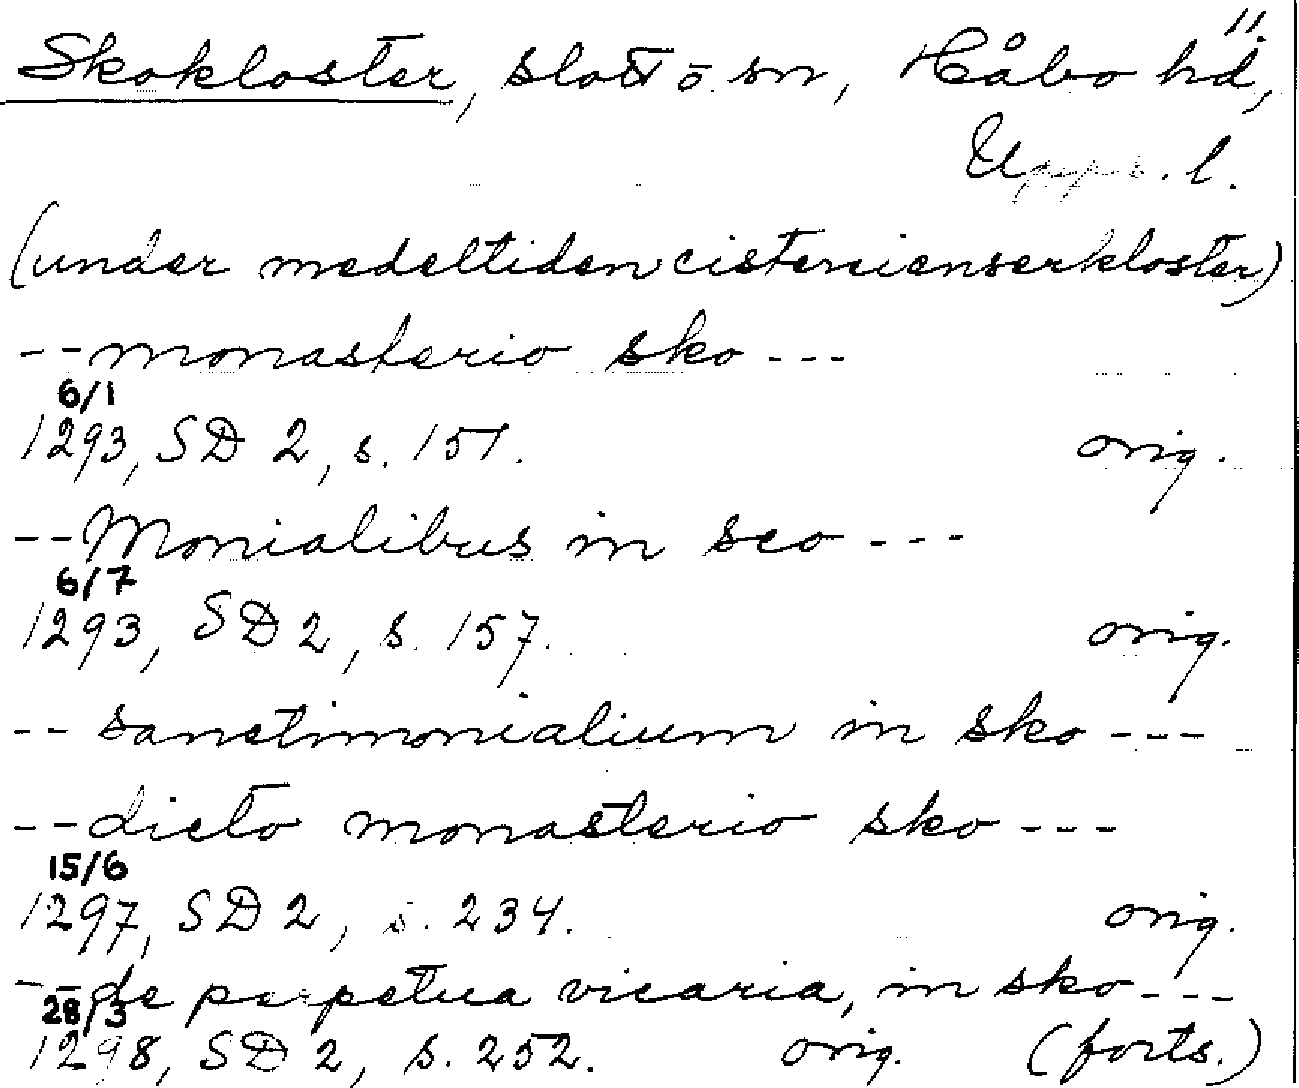 11.
Skokloster, slott o sn, Håbo hd,
Upps. l.
(under medeltiden cistercienserkloster)
--monasterio sko---
6/1
1293, SD 2, s. 151. orig.
--Monialibus in sco---
6/7
1293, SD 2, s. 157. orig.
--sanctimonialium in sko---
--dicto monasterio sko---
15/6
1297, SD 2, s. 234. orig.
--de perpetua vicaria, in sko---
28/3
1298, SD 2, s. 252. orig. (forts.)